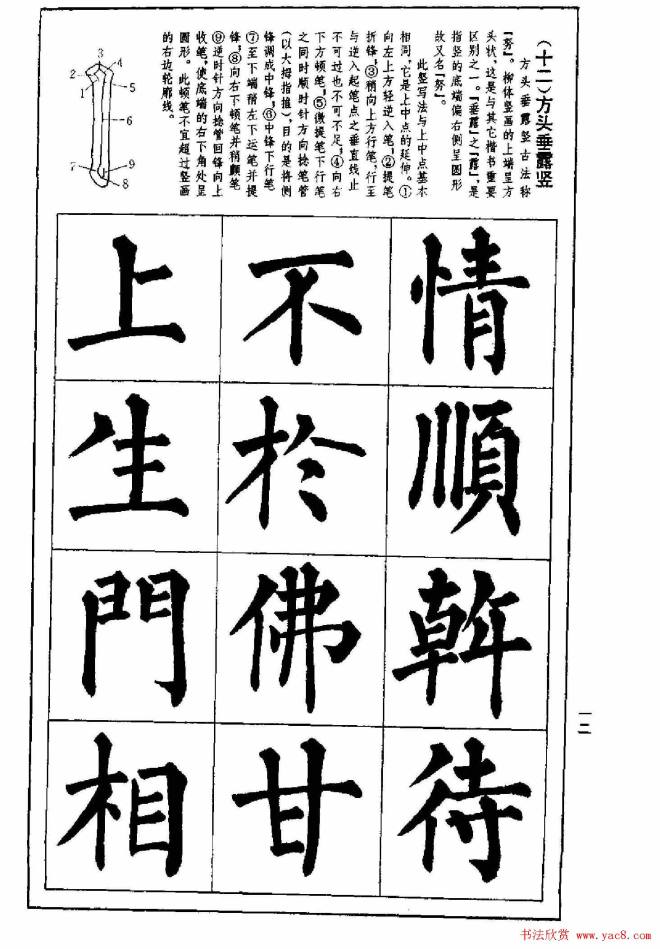 (十二)方头垂露竖
方头垂露竖古法称
“努”。柳体竖画的上端呈方
头状,这是与其它楷书重要
区别之一。“垂露”之“露”,是
指竖的底端偏右侧呈圆形
故又名“努”。
此竖写法与上中点基本
相同,它是上中点的延伸。①
向左上方轻逆入笔;②提笔
折锋;③稍向上方行笔,行至
与逆入起笔点之垂直线止
不可过也不可不足;④向右
下方顿笔;⑤微提笔下行笔
之同时顺时针方向捻笔管
(以大拇指推),目的是将侧
锋调成中锋;⑥中锋下行笔
⑦至下端稍左下运笔并提
锋;⑧向右下顿笔并稍颤笔
⑨逆时针方向捻管回锋向上
收笔,使底端的右下角处呈
圆形。此顿笔不宜超过竖画
的右边轮廓线。
3
2 4
1 5
6
7 9
8
情順幹待
不於佛甘
上生門相
一二
书法欣赏 www.yac8.com